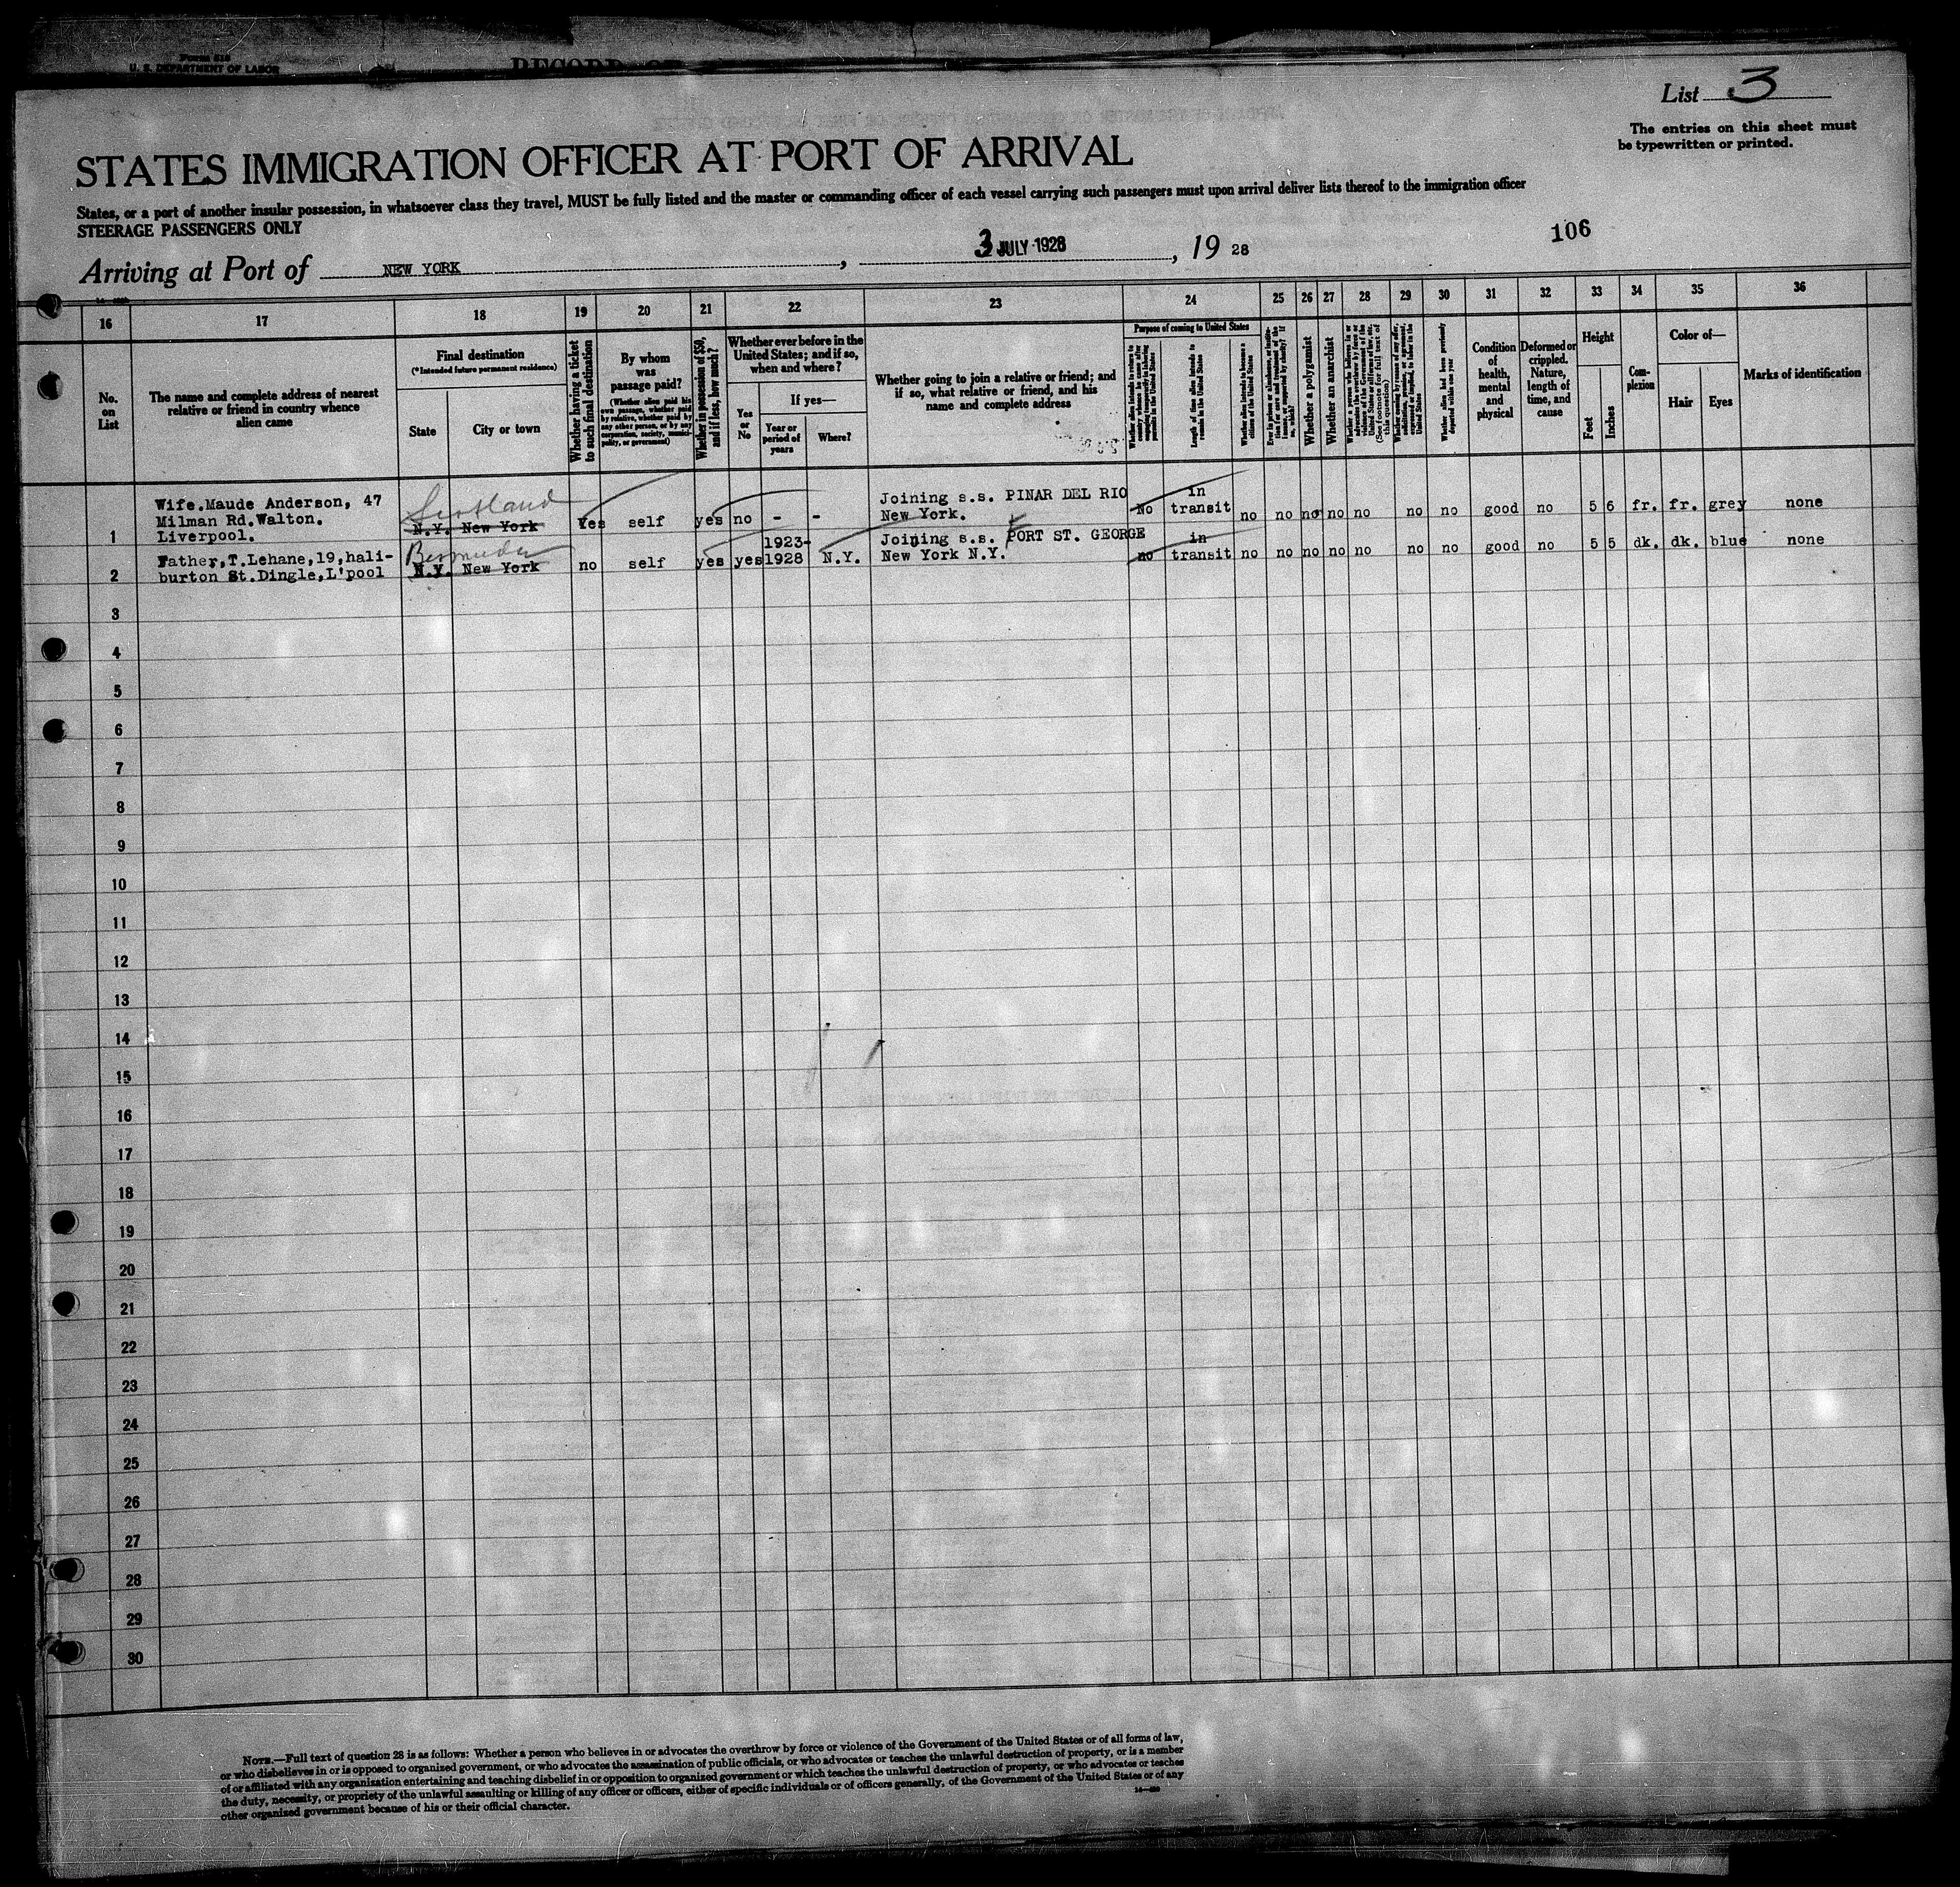 Form 518
U. S. DEPARTMENT OF LABOR
RECORD OF
List 3
The entries on this sheet must
be typewritten or printed.
STATES IMMIGRATION OFFICER AT PORT OF ARRIVAL
States, or a port of another insular possession, in whatsoever class they travel, MUST be fully listed and the master or commanding officer of each vessel carrying such passengers must upon arrival deliver lists thereof to the immigration officer
STEERAGE PASSENGERS ONLY
106
Arriving at Port of NEW YORK , 3 JULY 1928 , 19 28
16 17 18 19 20 21 22 23 24 25 26 27 28 29 30 31 32 33 34 35 36
No.
on
List
The name and complete address of nearest
relative or friend in country whence
alien came
Final destination
(*Intended future permanent residence)
State
City or town
Whether having a ticket
to such final destination
By whom
was
passage paid?
(Whether alien paid his
own passage, whether paid
by relative, whether paid by
any other person, or by any
corporation, society, munici-
pality, or government)
Whether in possession of $50,
and if less, how much?
Whether ever before in the
United States; and if so,
when and where?
Yes
or
No
If yes—
Year or
period of
years
Where?
Whether going to join a relative or friend; and
if so, what relative or friend, and his
name and complete address
Purpose of coming to United States
Length of time alien intends to
remain in the United States
Whether alien intends to become a
citizen of the United States
Whether a polygamist
Whether an anarchist
(See footnote for full text of
this question)
Whether alien had been previously
deported within one year
Condition
of
health,
mental
and
physical
Deformed or
crippled.
Nature,
length of
time, and
cause
Height
Feet
Inches
Com-
plexion
Color of—
Hair
Eyes
Marks of identification
1 Wife.Maude Anderson, 47
Milman Rd.Walton.
Liverpool.
Scotland
N.Y. New York Yes self yes no - - Joining s.s. PINAR DEL RIO
New York. No in
transit no no no no no no no good no 5 6 fr. fr. grey none
2 Father,T.Lehane,19,hali-
burton St.Dingle,L'pool
Bermuda
N.Y. New York no self yes yes 1923-
1928 N.Y. Joining s.s. PORT ST. GEORGE
New York N.Y. no in
transit no no no no no no no good no 5 5 dk. dk. blue none
3
4
5
6
7
8
9
10
11
12
13
14
15
16
17
18
19
20
21
22
23
24
25
26
27
28
29
30
NOTE.—Full text of question 28 is as follows: Whether a person who believes in or advocates the overthrow by force or violence of the Government of the United States or of all forms of law,
or who disbelieves in or is opposed to organized government, or who advocates the assassination of public officials, or who advocates or teaches the unlawful destruction of property, or is a member
of or affiliated with any organization entertaining and teaching disbelief in or opposition to organized government or which teaches the unlawful destruction of property, or who advocates or teaches
the duty, necessity, or propriety of the unlawful assaulting or killing of any officer or officers, either of specific individuals or of officers generally, of the Government of the United States or of any
other organized government because of his or their official character.